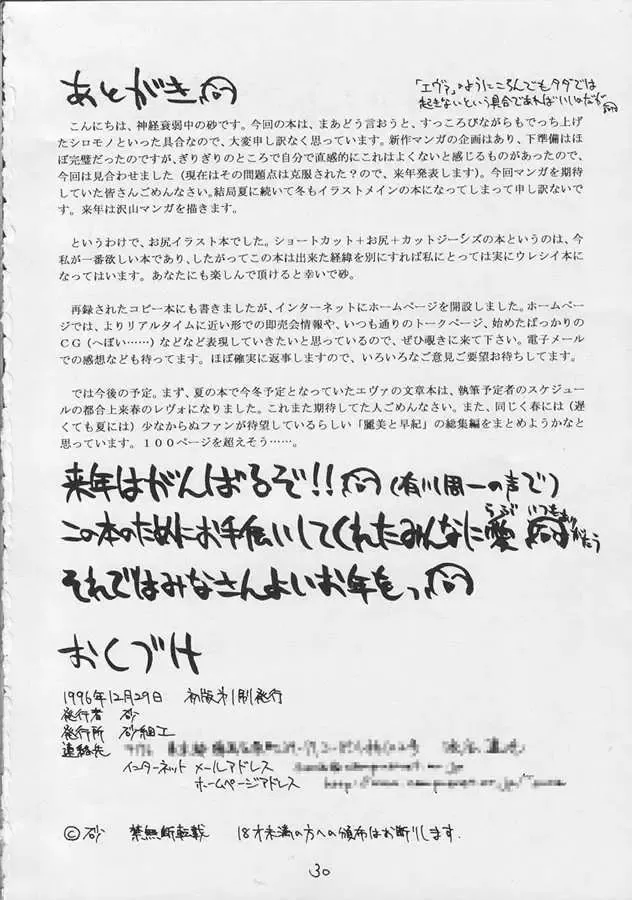 あとがき
「エヴァ」のようにころんでもタダでは
起きないという具合であればいいのだが
こんにちは、神経衰弱中の砂です。今回の本は、まあどう言おうと、すっころびながらもでっち上げ
たシロモノといった具合なので、大変申し訳なく思っています。新作マンガの企画はあり、下準備はほ
ぼ完璧だったのですが、ぎりぎりのところで自分で直感的にこれはよくないと感じるものがあったので、
今回は見合わせました（現在はその問題点は克服された？ので、来年発表します）。今回マンガを期待
していた皆さんごめんなさい。結局夏に続いて冬もイラストメインの本になってしまって申し訳ないで
す。来年は沢山マンガを描きます。
というわけで、お尻イラスト本でした。ショートカット＋お尻＋カットジーンズの本というのは、今
私が一番欲しい本であり、したがってこの本は出来た経緯を別にすれば私にとっては実にウレシイ本に
なってはいます。あなたにも楽しんで頂けると幸いで砂。
再録されたコピー本にも書きましたが、インターネットにホームページを開設しました。ホームペー
ジでは、よりリアルタイムに近い形での即売会情報や、いつも通りのトークページ、始めたばっかりの
ＣＧ（へぼい……）などなど表現していきたいと思っているので、ぜひ覗きに来て下さい。電子メール
での感想なども待ってます。ほぼ確実に返事しますので、いろいろなご意見ご要望お待ちしてます。
では今後の予定。まず、夏の本で今冬予定となっていたエヴァの文章本は、執筆予定者のスケジュー
ルの都合上来春のレヴォになりました。これまた期待してた人ごめんなさい。また、同じく春には（遅
くても夏には）少なからぬファンが待望しているらしい「麗美と早紀」の総集編をまとめようかなと
思っています。１００ページを超えそう……。
来年はがんばるぞ!!（有川周一の声で）
この本のためにお手伝いしてくれたみんなに愛 らぶ いつもありがとう
それではみなさんよいお年をっ
おくづけ
1996年12月29日 初版第1刷発行
発行者 砂
発行所 砂細工
連絡先
インターネット メールアドレス
ホームページアドレス
©砂 禁無断転載 18才未満の方への頒布はお断りします。
30